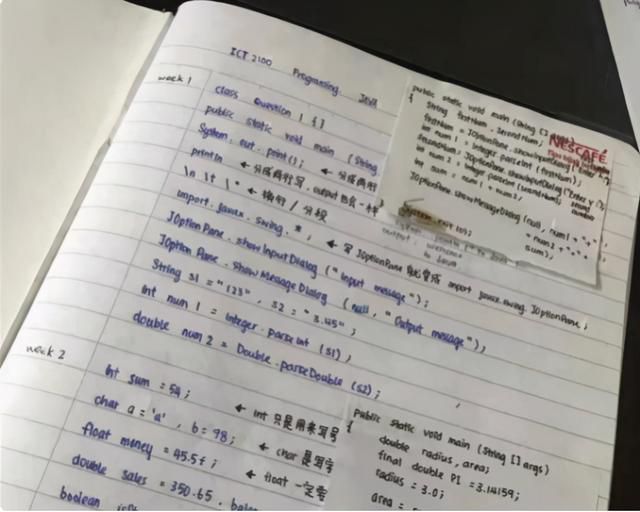 ICT 2100 Programing. JAVA
week 1
class Question 1 { }
public static void main (String
System. out. print(); ← 分成两行
println ← 分成两行写, output 也会一样
\n \t \" ← 换行 / 分段
import. javax. swing. *; ← 写 JOptionPane 就要写 import javax.swing. JOptionPane;
JOption Pane. showInputDialog ("Input message");
JOption Pane. showMessageDialog (null, "Output message");
String s1 = "123", s2 = "3.125";
int num 1 = Integer. parseInt (s1);
double num 2 = Double. parseDouble (s2);
public static void main (String [] args)
{ String firstNum, secondNum;
firstNum = JOptionPane. showInputDialog ("Enter
int num 1 = Integer. parseInt (firstNum);
secondNum = JOptionPane. showInputDialog ("Enter
int num 2 = Integer. parseInt (secondNum);
int sum = num 1 + num 2;
JOptionPane. showMessageDialog (null, num1 + "+"
+ num2 + "="
sum);
NESCAFÉ
week 2
int sum = 54; ← int 只是用来写号
char a = 'a', b = 98; ← char 是写字
float money = 45.5f; ← float 一定要
double sales = 350.65,
boolean
public static void main (String [] args)
{
double radius, area;
final double PI = 3.14159;
radius = 3.0;
area =